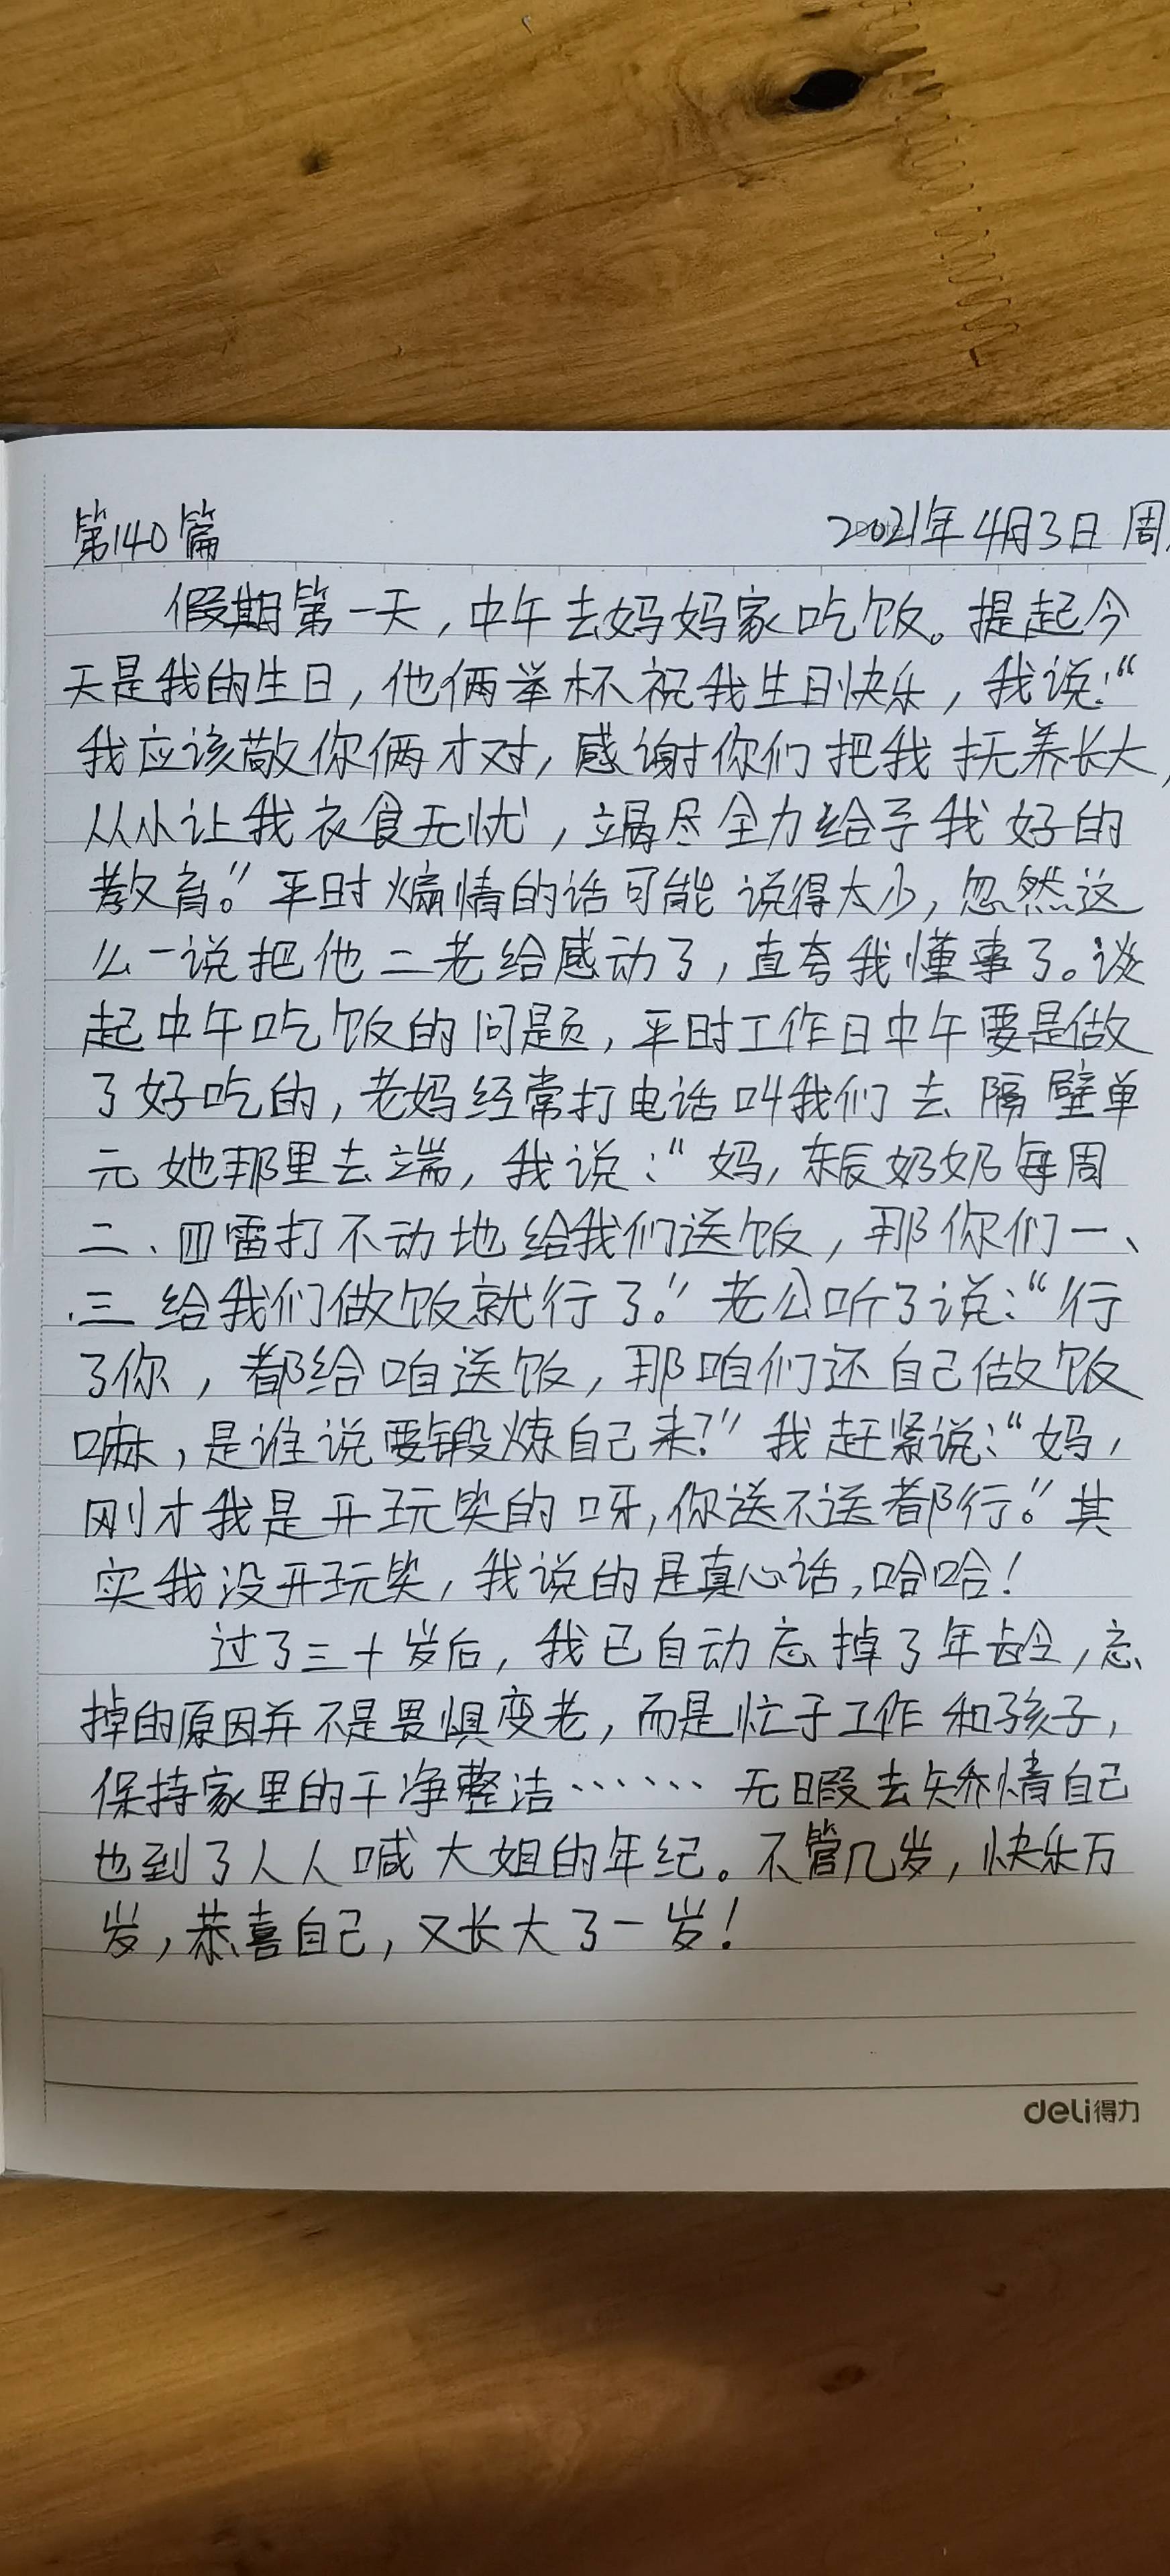 第140篇
2021年4月3日 周
假期第一天，中午去妈妈家吃饭。提起今
天是我的生日，他俩举杯祝我生日快乐，我说：“
我应该敬你俩才对，感谢你们把我抚养长大，
从小让我衣食无忧，竭尽全力给予我好的
教育。”平时煽情的话可能说得太少，忽然这
么一说把他二老给感动了，直夸我懂事了。谈
起中午吃饭的问题，平时工作日中午要是做
了好吃的，老妈经常打电话叫我们去隔壁单
元她那里去端，我说：“妈，东辰奶奶每周
二、四雷打不动地给我们送饭，那你们一、
三给我们做饭就行了。”老公听了说：“行
了你，都给咱送饭，那咱们还自己做饭
嘛，是谁说要锻炼自己来？”我赶紧说：“妈，
刚才我是开玩笑的呀，你送不送都行。”其
实我没开玩笑，我说的是真心话，哈哈！
过了三十岁后，我已自动忘掉了年龄，忘
掉的原因并不是畏惧变老，而是忙于工作和孩子，
保持家里的干净整洁……无暇去矫情自己
也到了人人喊大姐的年纪。不管几岁，快乐万
岁，恭喜自己，又长大了一岁！
deli得力